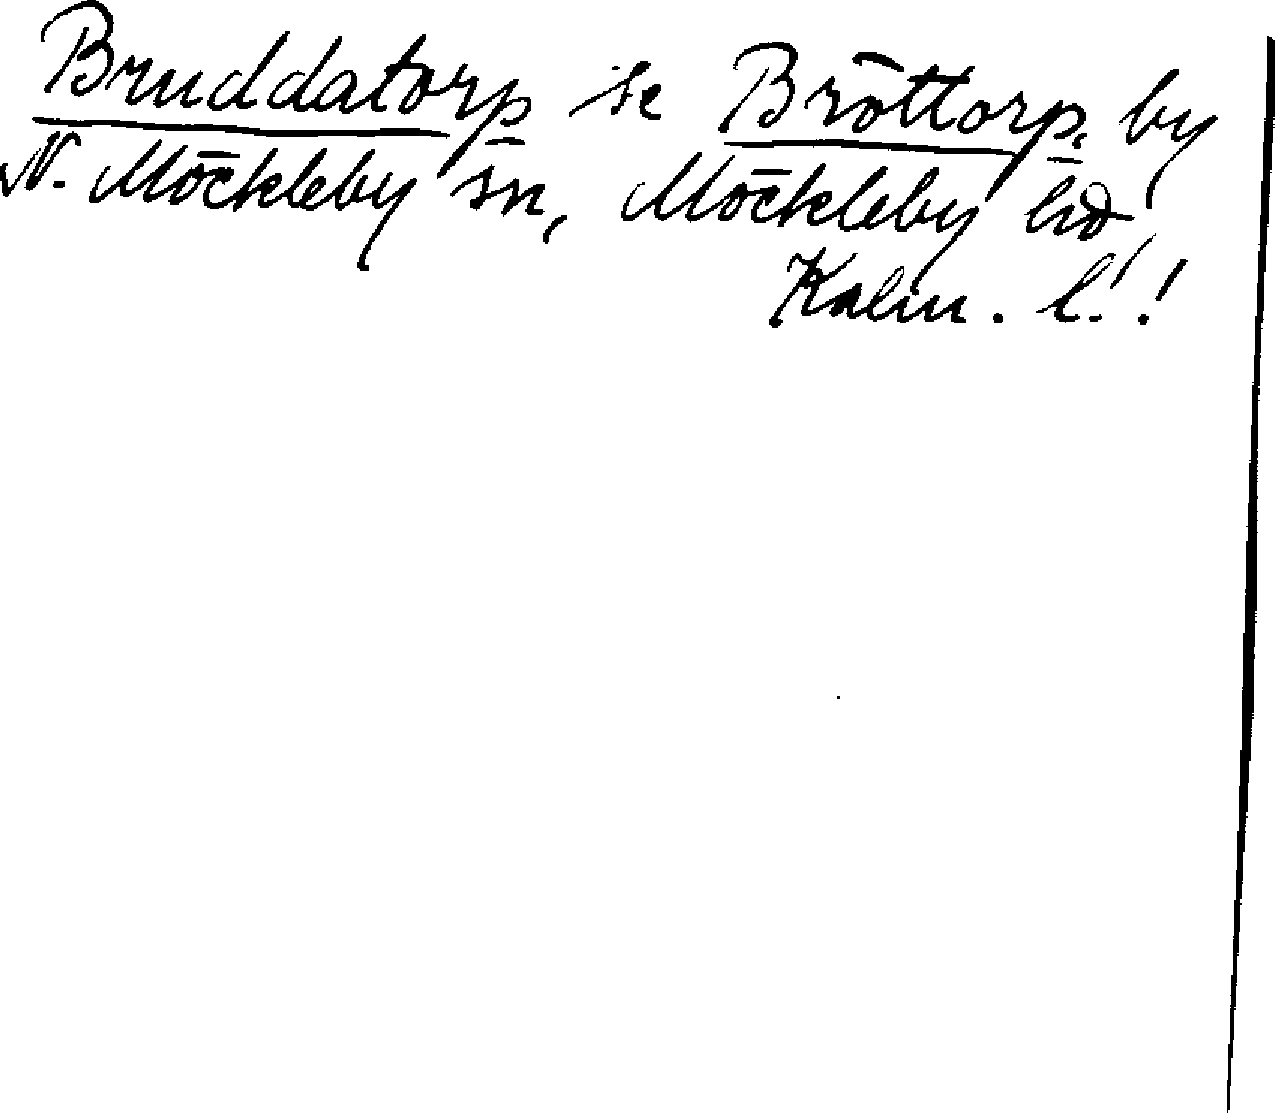 Bruddatorp se Bröttorp, by
N. Möckleby sn, Möckleby hd
Kalm. l.!!